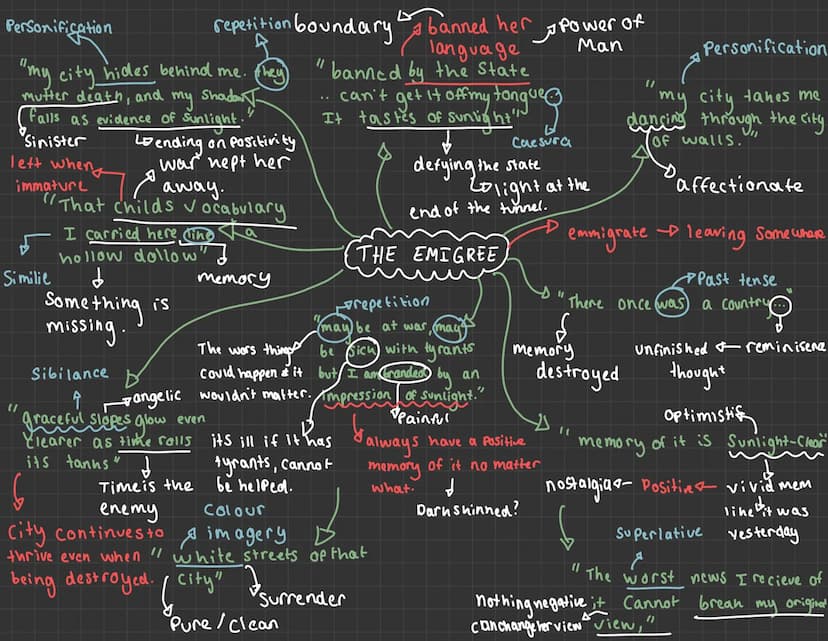 Personification
repetition
boundary
banned her
language
power of
Man
Personification
"my city hides behind me. they
mutter death, and my shadow
falls as evidence of sunlight."
sinister
ending on positivity
left when
immature
war kept her
away.
"banned by the State
.. can't get it off my tongue...
It tastes of sunlight"
Caesura
defying the state
light at the
end of the tunnel.
"my
city takes me
dancing through the city
of walls."
affectionate
"That childs vocabulary
I carried here like a
hollow dollow"
Similie
Something is
missing.
memory
THE EMIGREE
emmigrate → leaving somewhere
Past tense
"There once was a country..."
memory
destroyed
unfinished
thought
reminisene
repetition
"may be at war, may
be sick with tyrants
but I am branded by an
impression of sunlight."
The wors thing
could happen & it
wouldn't matter.
Painful
its ill if it has
tyrants, cannot
be helped.
always have a positive
memory of it no matter
what.
Darkshinned?
Sibilance
angelic
"graceful slopes glow even
clearer as time rolls
its tanks"
Time is the
enemy
City continues to
thrive even when
being destroyed.
Colour
imagery
"white streets of that
city"
Surrender
Pure/clean
Optimistic
"memory of it is Sunlight-Clear"
nostalgia
Positive
vivid mem
like it was
yesterday
Superlative
"The worst news I recieve of
it cannot break my original
view,"
nothing negative
can change her view